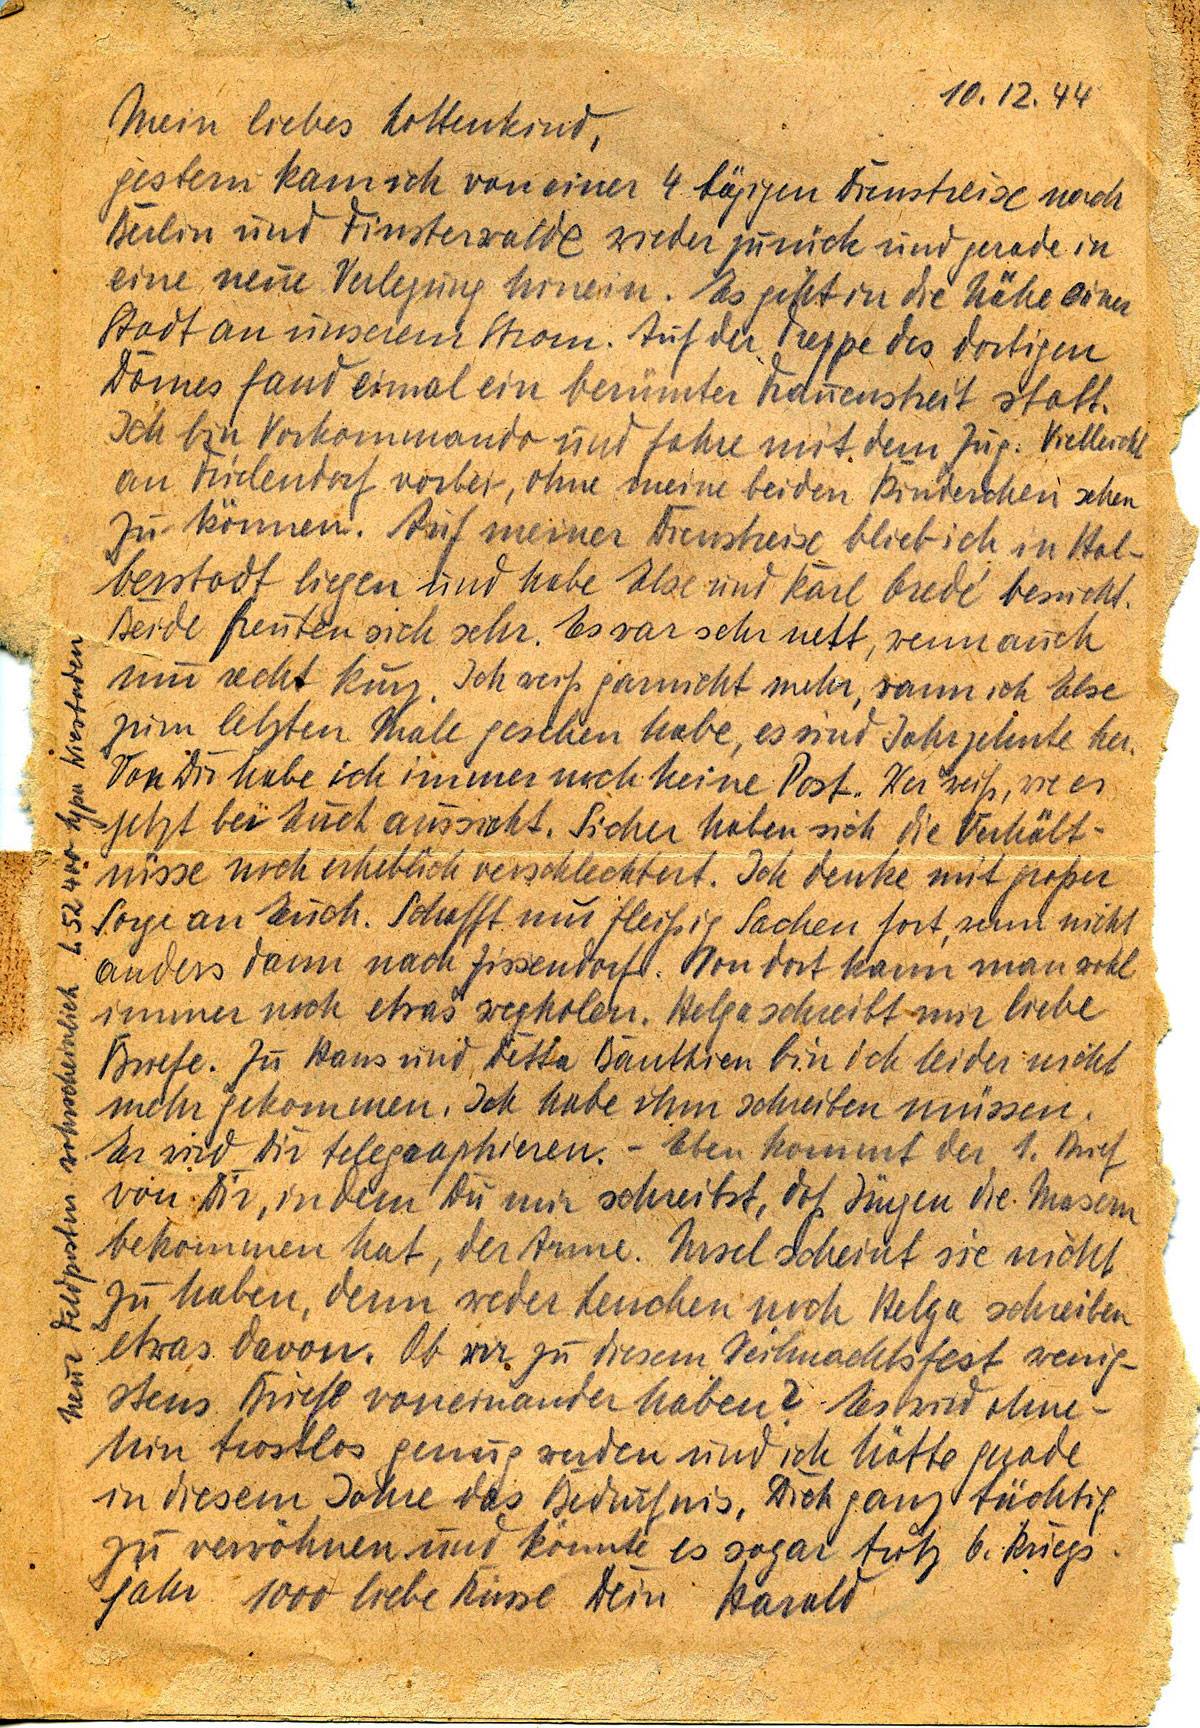 10.12.44
Mein liebes Lottenkind,
gestern kam ich von einer 4 tägigen Dienstreise nach
Berlin und Finsterwalde wieder zurück und gerade in
eine neue Verlegung hinein. Es geht in die Nähe einer
Stadt an unserem Strom. Auf der Treppe des dortigen
Domes fand einmal ein berümter Frauenstreit statt.
Ich bin Vorkommando und fahre mit dem Zug. Vielleicht
an vorbei, ohne meine beiden Kinderchen sehen
zu können. Auf meiner Dienstreise blieb ich in Hal-
berstadt liegen und habe Else und Karl Bredé besucht.
Beide freuten sich sehr. Es war sehr nett, wenn auch
nur recht kurz. Ich weiß garnicht mehr, wann ich Else
zum letzten Male gesehen habe, es sind Jahrzehnte her.
Von Dir habe ich immer noch keine Post. Wer weiß, wie es
jetzt bei Euch aussieht. Sicher haben sich die Verhält-
nisse noch erheblich verschlechtert. Ich denke mit großer
Sorge an Euch. Schafft nur fleißig Sachen fort, wenn nicht
anders dann nach Zissendorf. Von dort kann man wohl
immer noch etwas wegholen. Helga schreibt mir liebe
Briefe. Zu Hans und Detta Bauthien bin ich leider nicht
mehr gekommen. Ich habe ihm schreiben müssen.
Er wird Dir telegraphieren. - Eben kommt der 1. Brief
von Dir, in dem Du mir schreibst, daß Jürgen die Masern
bekommen hat, der Arme. Ursel scheint sie nicht
zu haben, denn weder Lenchen noch Helga schreiben
etwas davon. Ob wir zu diesem Weihnachtsfest wenig-
stens Briefe voneinander haben? Es wird ohne-
hin trostlos genug werden und ich hätte gerade
in diesem Jahre das Bedürfnis, Dich ganz tüchtig
zu verwöhnen und könnte es sogar trotz 6. Kriegs
jahr 1000 liebe Küsse Dein Harald
neue Feldpostnr wahrscheinlich L 52400